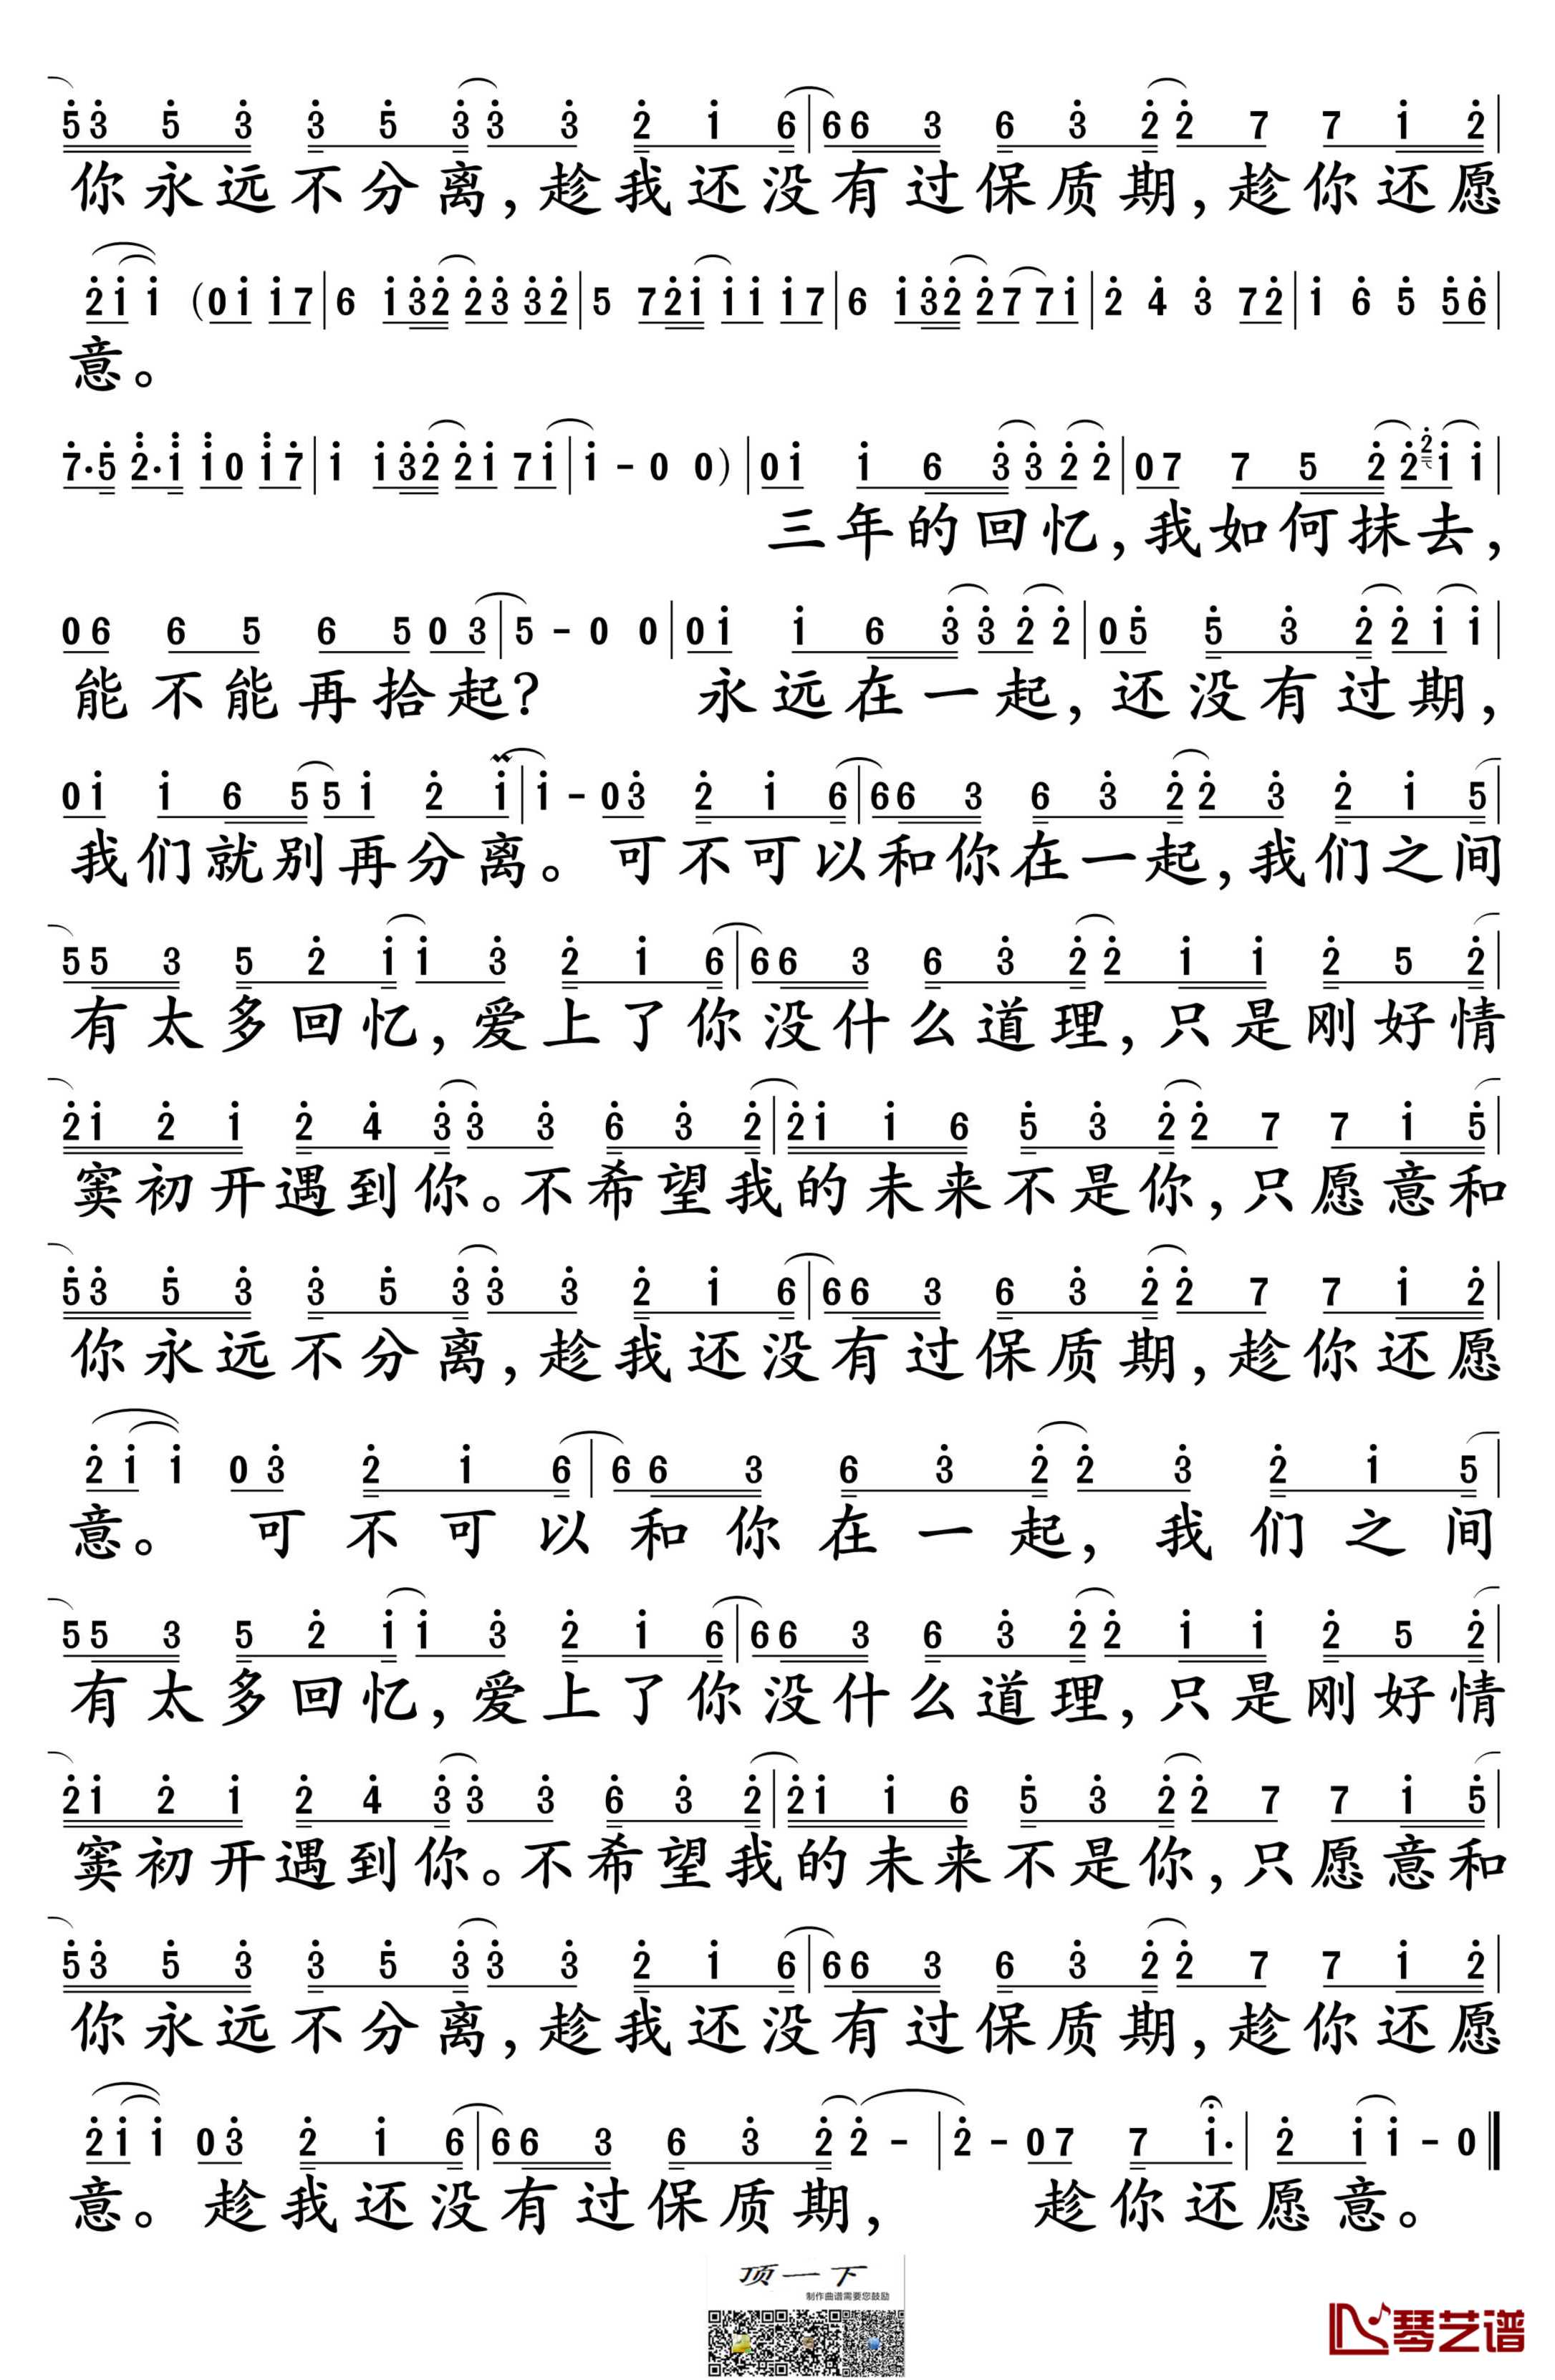 5 3 5 3 3 5 3 3 3 2 1 6 | 6 6 3 6 3 2 2 7 7 1 2 |
你永远不分离,趁我还没有过保质期,趁你还愿
2 1 1 (0 1 1 7 | 6 1 3 2 2 3 3 2 | 5 7 2 1 1 1 1 7 | 6 1 3 2 2 7 7 1 | 2 4 3 7 2 | 1 6 5 5 6 |
意。
7· 5 2· 1 1 0 1 7 | 1 1 3 2 2 1 7 1 | 1 - 0 0) | 0 1 1 6 3 3 2 2 | 0 7 7 5 2 2 2 1 1 |
三年的回忆,我如何抹去,
0 6 6 5 6 5 0 3 | 5 - 0 0 | 0 1 1 6 3 3 2 2 | 0 5 5 3 2 2 1 1 |
能不能再拾起? 永远在一起,还没有过期,
0 1 1 6 5 5 1 2 1 | 1 - 0 3 2 1 6 | 6 6 3 6 3 2 2 3 2 1 5 |
我们就别再分离。可不可以和你在一起,我们之间
5 5 3 5 2 1 1 3 2 1 6 | 6 6 3 6 3 2 2 1 1 2 5 2 |
有太多回忆,爱上了你没什么道理,只是刚好情
2 1 2 1 2 4 3 3 3 6 3 2 | 2 1 1 6 5 3 2 2 7 7 1 5 |
窦初开遇到你。不希望我的未来不是你,只愿意和
5 3 5 3 3 5 3 3 3 2 1 6 | 6 6 3 6 3 2 2 7 7 1 2 |
你永远不分离,趁我还没有过保质期,趁你还愿
2 1 1 0 3 2 1 6 | 6 6 3 6 3 2 2 3 2 1 5 |
意。 可不可以和你在一起,我们之间
5 5 3 5 2 1 1 3 2 1 6 | 6 6 3 6 3 2 2 1 1 2 5 2 |
有太多回忆,爱上了你没什么道理,只是刚好情
2 1 2 1 2 4 3 3 3 6 3 2 | 2 1 1 6 5 3 2 2 7 7 1 5 |
窦初开遇到你。不希望我的未来不是你,只愿意和
5 3 5 3 3 5 3 3 3 2 1 6 | 6 6 3 6 3 2 2 7 7 1 2 |
你永远不分离,趁我还没有过保质期,趁你还愿
2 1 1 0 3 2 1 6 | 6 6 3 6 3 2 2 - | 2 - 0 7 7 1· | 2 1 1 - 0 ‖
意。趁我还没有过保质期, 趁你还愿意。
顶一下
制作曲谱需要您鼓励
琴艺谱